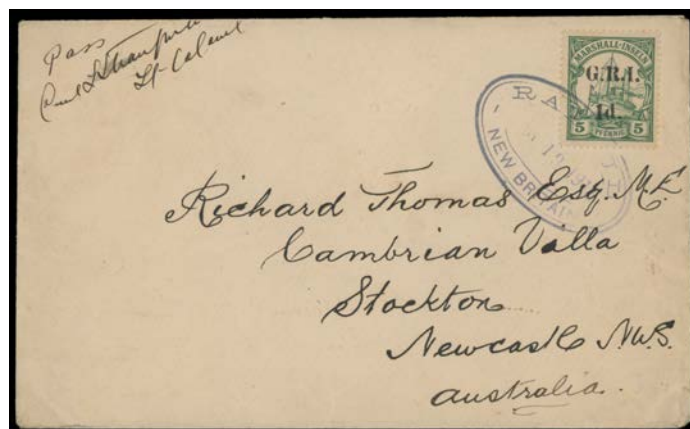 Pass
Lt. Colonel
MARSHALL-INSELN
G.R.I.
1d.
5 PFENNIG 5
RA
NEW BRITAIN
Richard Thomas Esq. M.E.
Cambrian Villa
Stockton
Newcastle N.W.S.
Australia.